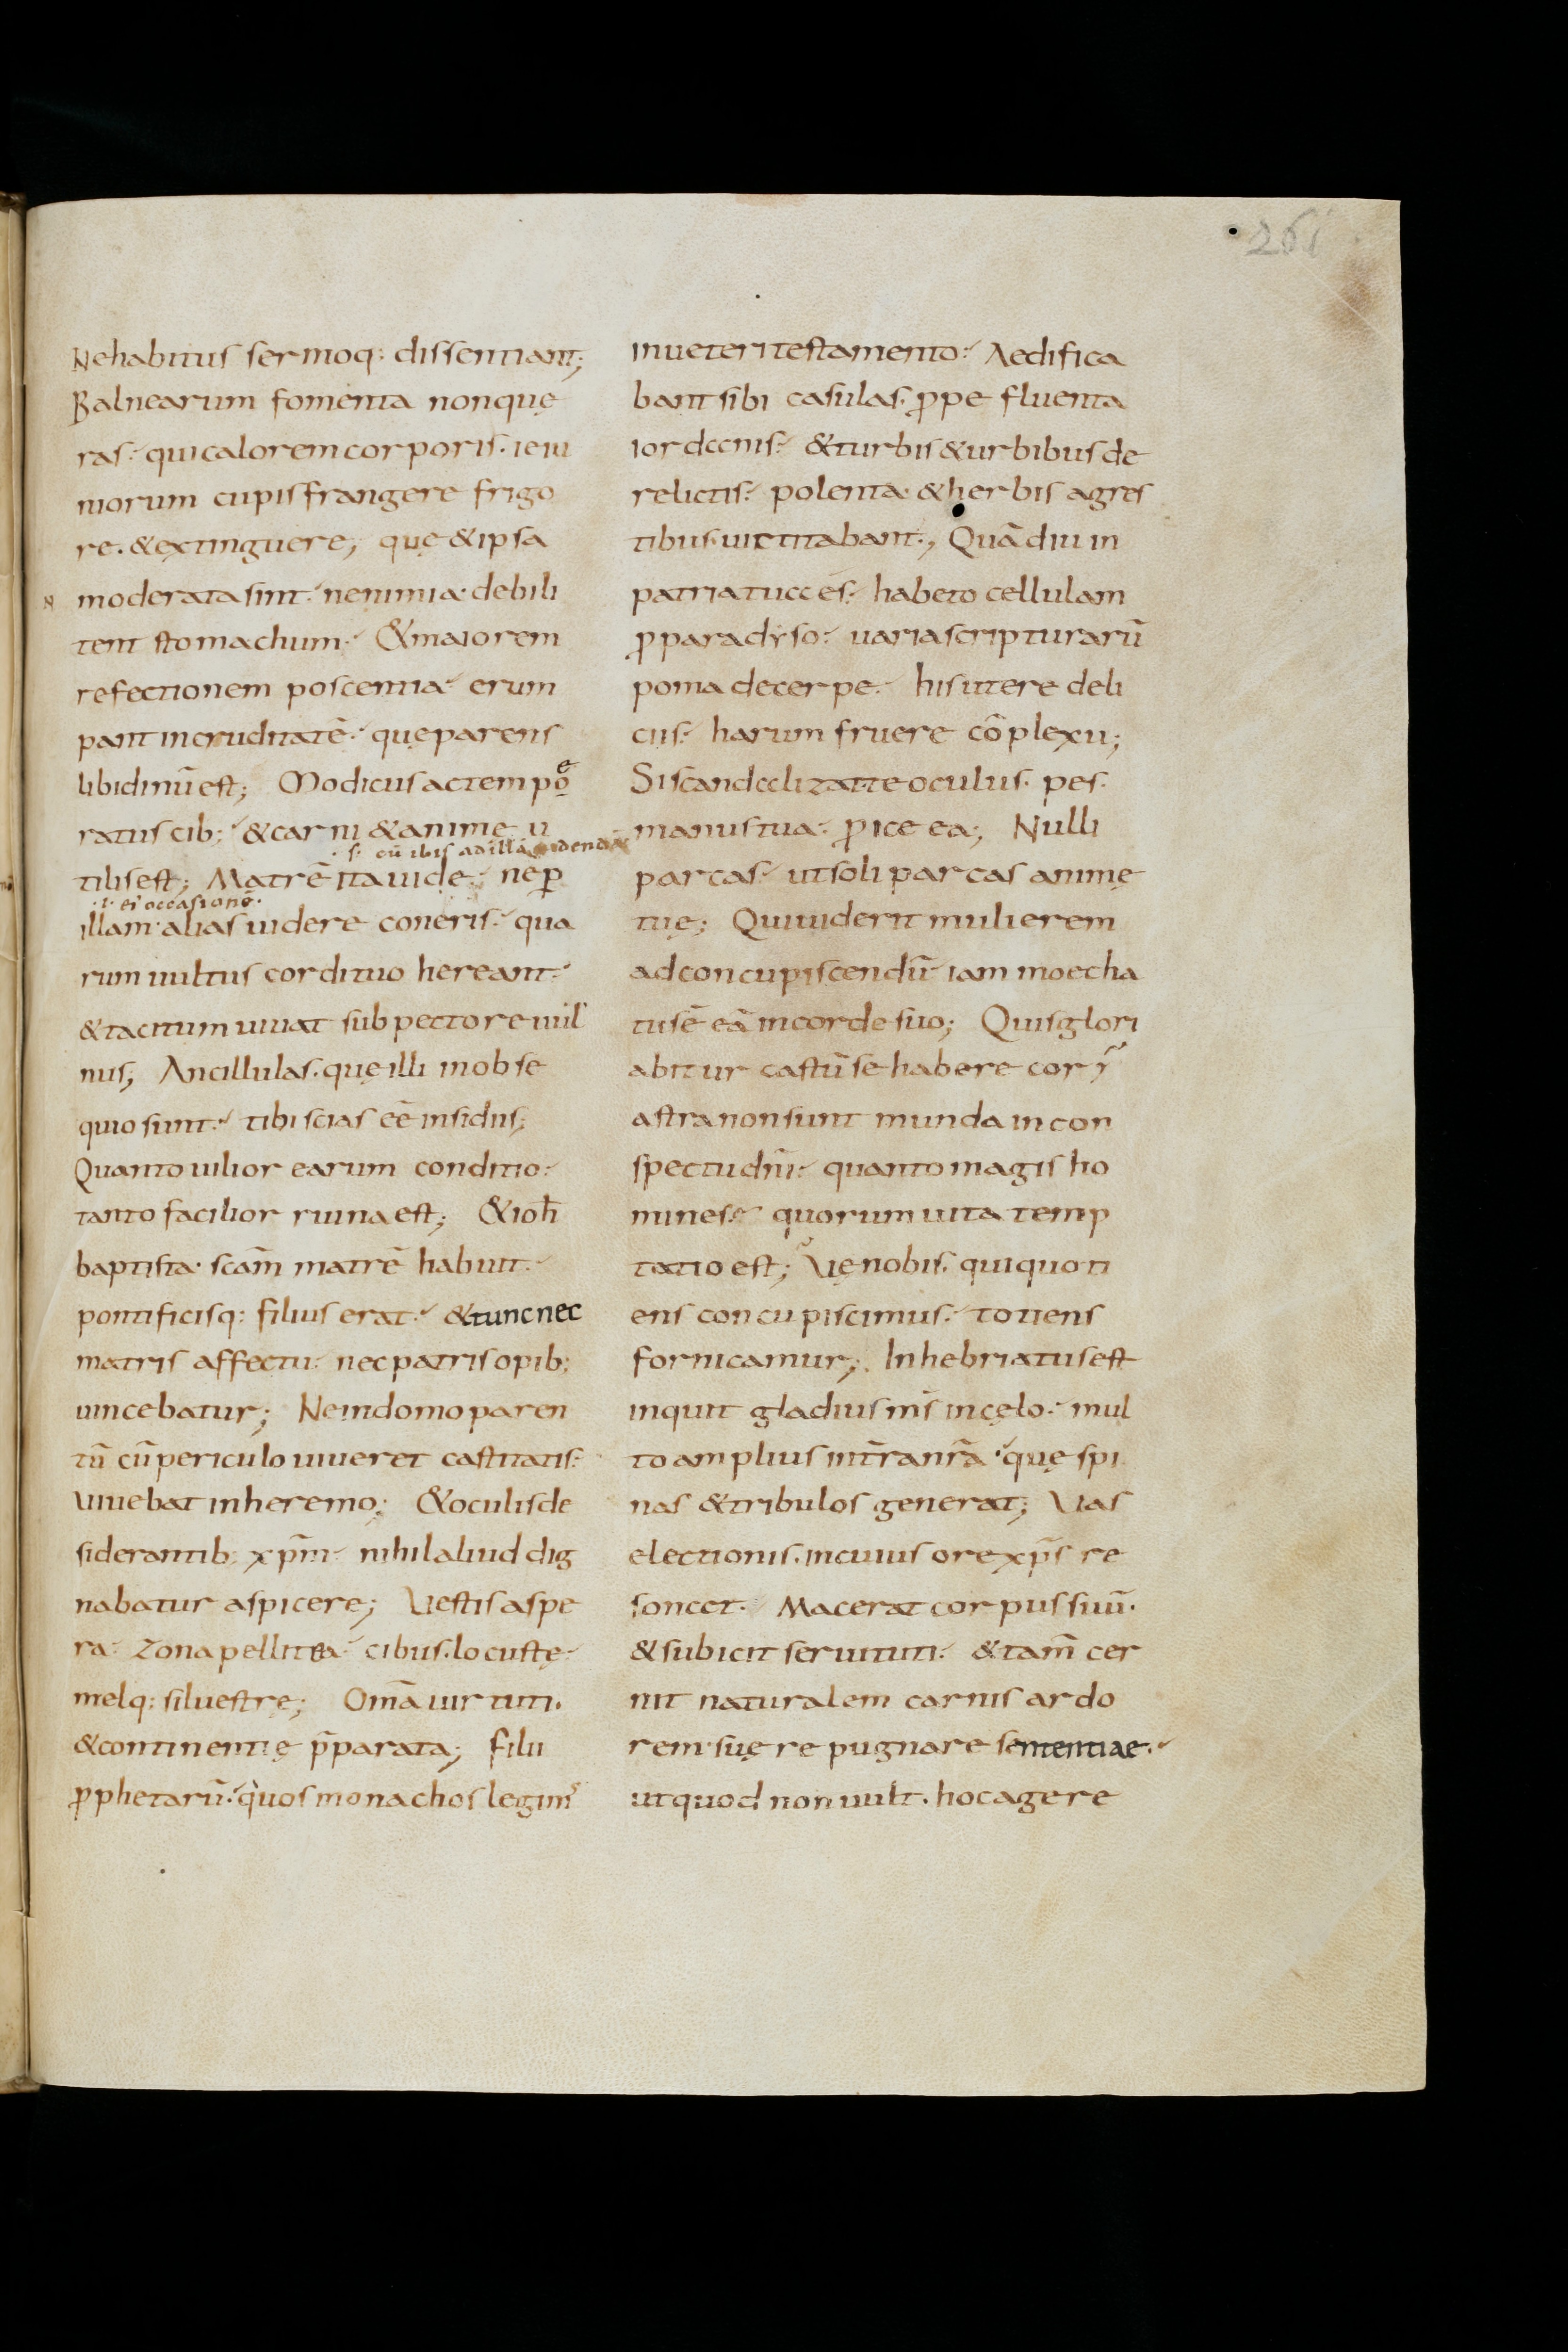 261
Nehabitus sermoq: dissentiant;
Balnearum fomenta nonquę
ras· quicaloremcorporis· ieiu
niorum cupisfrangere frigo
re. &extinguere; quę &ipsa
N moderatasint· nenimia· debili
tent stomachum· &maiorem
refectionem poscentia· erum
pant incruditatē· quęparens
libidinū est; Modicusactempọe
ratus cib; &carni &animę u
·s· cū ibis adillā uidendā
tilisest; Matrē itauide· ne ꝑ
·i· ei occasionē·
illam· aliasuidere coneris· qua
rum uultus cordituo hereant·
&tacitum uiuat subpectoreuul
nus; Ancillulas· quęilli inobse
quiosunt· tibiscias eē insidiis;
Quanto uilior earum conditio·
tanto facilior ruinaest; &ioh̄
baptista· scām matrē habuit·
pontificisq: filius erat· &tuncnec
matris affectu· necpatrisopib;
uincebatur; Neindomoparen
tū cūpericulo uiueret castitatis·
Uiuebat inheremo; &oculisde
siderantib; xp̄m· nihilaliud dig
nabatur aspicere; Uestisaspe
ra· Zonapellitea· cibus· locustę·
melq: siluestrę; Omā uirtuti·
&continentię p̄parata; filii
ꝓphetarū· quosmonachoslegim᾽
inueteritestamento· Aedifica
bantsibi casulas· ꝓpe fluenta
iordanis· &turbis&urbibusde
relictis· polenta· &herbis agres
tibus· uictitabant·, Quādiu in
patriatuaes· habeto cellulam
ꝓparadyso· uariascripturarū
pomadecerpe· hisutere deli
ciis· harum fruere cōplexu;
Siscandalizatteoculus· pes·
manustua· ꝓice ea; Nulli
parcas· utsoli parcas animę
tuę; Quiuiderit mulierem
adconcupiscendū· iam moecha
tusē eā incordesuo; Quisglori
abitur castūsehabere cor
astranonsunt munda incon
spectudn̄i· quantomagis ho
mines· quorumuita temp
tatioest; Uęnobis· quiquoti
ens concupiscimus· totiens
fornicamur; Inhebriatusest
inquit gladiusm̄s incęlo· mul
toamplius int̄ran̄rā· quę spi
nas &tribulos generat; Uas
electionis· incuius orexp̄s re
sonat· Macerat corpussuū·
&subicit seruituti· &tam̄ cer
nit naturalem carnis ardo
rem· suę repugnare sententiae·
utquod nonuult· hocagere